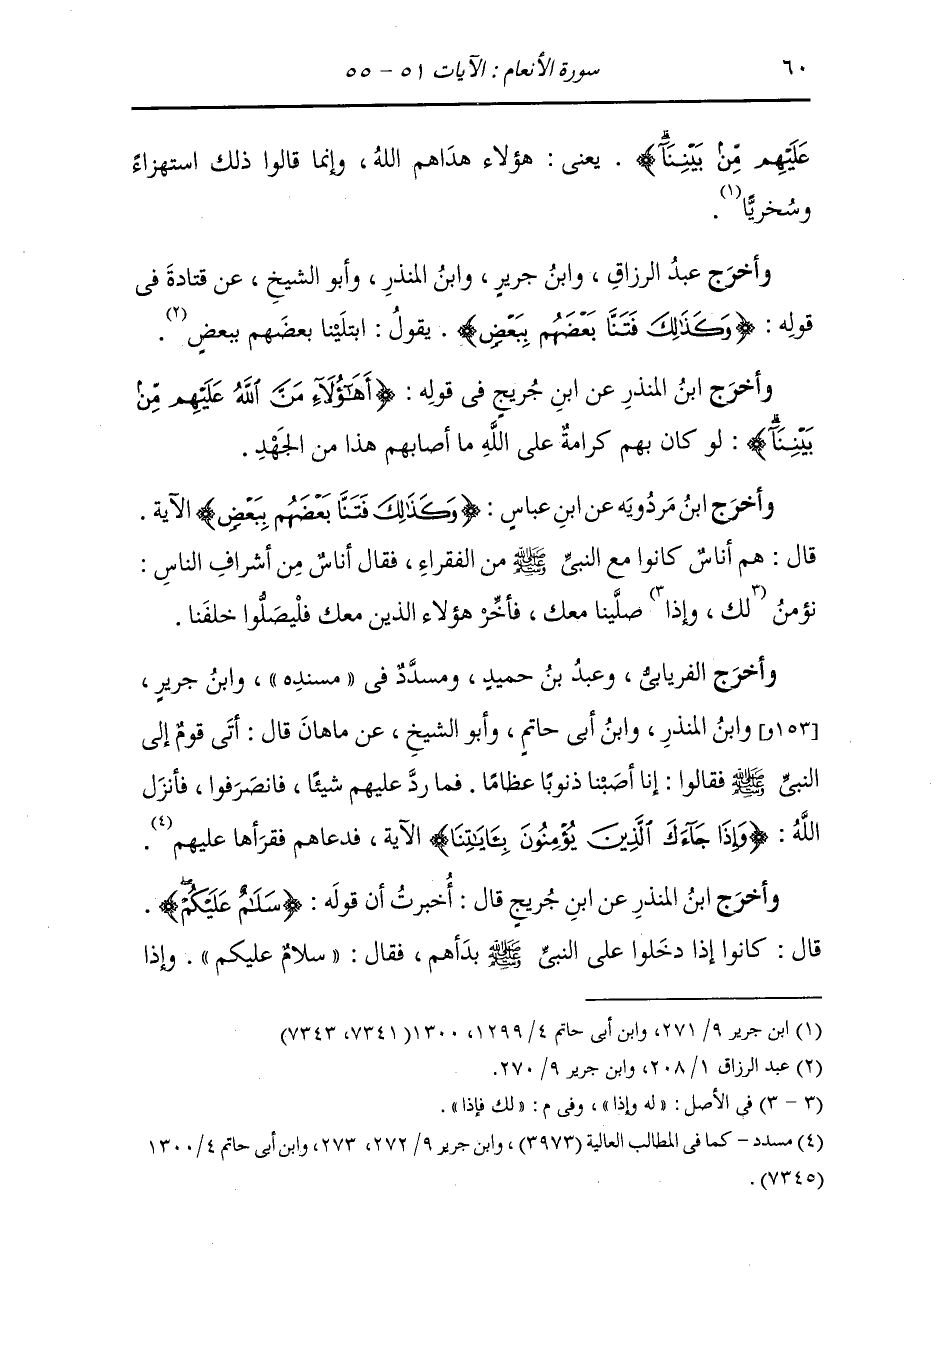 ٦٠
سورة الأنعام : الآيات ٥١ - ٥٥
عَلَيْهِم مِّنۢ بَيْنِنَآۗ﴾ . يعنى : هؤلاء هدَاهم اللهُ ، وإنما قالوا ذلك استهزاءً
وسُخريًّا(١) .
وأخرَج عبدُ الرزاقِ ، وابنُ جريرٍ ، وابنُ المنذرِ ، وأبو الشيخِ ، عن قتادةَ فى
قولِه : ﴿وَكَذَٰلِكَ فَتَنَّا بَعْضَهُم بِبَعْضٍ﴾ . يقولُ : ابتلَيْنا بعضَهم ببعضٍ(٢) .
وأخرَج ابنُ المنذرِ عن ابنِ جُريجٍ فى قولِه : ﴿أَهَٰٓؤُلَآءِ مَنَّ ٱللَّهُ عَلَيْهِم مِّنۢ
بَيْنِنَآۗ﴾ : لو كان بهم كرامةٌ على اللَّهِ ما أصابهم هذا من الجَهْدِ .
وأخرَج ابنُ مَردُويَه عن ابنِ عباسٍ : ﴿وَكَذَٰلِكَ فَتَنَّا بَعْضَهُم بِبَعْضٍ﴾ الآية .
قال : هم أناسٌ كانوا مع النبىِّ ﷺ من الفقراءِ ، فقال أناسٌ مِن أشرافِ الناسِ :
نؤمنُ (٣لك ، وإذا٣) صلَّينا معك ، فأخِّرْ هؤلاء الذين معك فلْيصَلُّوا خلفَنا .
وأخرَج الفريابىُّ ، وعبدُ بنُ حميدٍ ، ومسدَّدٌ فى « مسندِه » ، وابنُ جريرٍ ،
[١٥٣و] وابنُ المنذرِ ، وابنُ أبى حاتمٍ ، وأبو الشيخِ ، عن ماهانَ قال : أتَى قومٌ إلى
النبىِّ ﷺ فقالوا : إنا أصَبْنا ذنوبًا عظامًا . فما ردَّ عليهم شيئًا ، فانصَرَفوا ، فأنزَل
اللَّهُ : ﴿وَإِذَا جَآءَكَ ٱلَّذِينَ يُؤْمِنُونَ بِـَٔايَٰتِنَا﴾ الآية ، فدعاهم فقرَأها عليهم(٤) .
وأخرَج ابنُ المنذرِ عن ابنِ جُريجٍ قال : أُخبرتُ أن قولَه : ﴿سَلَٰمٌ عَلَيْكُمْۖ﴾ .
قال : كانوا إذا دخَلوا على النبىِّ ﷺ بدَأهم ، فقال : « سلامٌ عليكم » . وإذا
(١) ابن جرير ٩/ ٢٧١، وابن أبى حاتم ٤/ ١٢٩٩، ١٣٠٠ (٧٣٤١، ٧٣٤٣)
(٢) عبد الرزاق ١/ ٢٠٨، وابن جرير ٩/ ٢٧٠.
(٣ - ٣) فى الأصل : « له وإذا » ، وفى م : « لك فإذا » .
(٤) مسدد - كما فى المطالب العالية (٣٩٧٣) ، وابن جرير ٩/ ٢٧٢، ٢٧٣، وابن أبى حاتم ٤/ ١٣٠٠
(٧٣٤٥) .